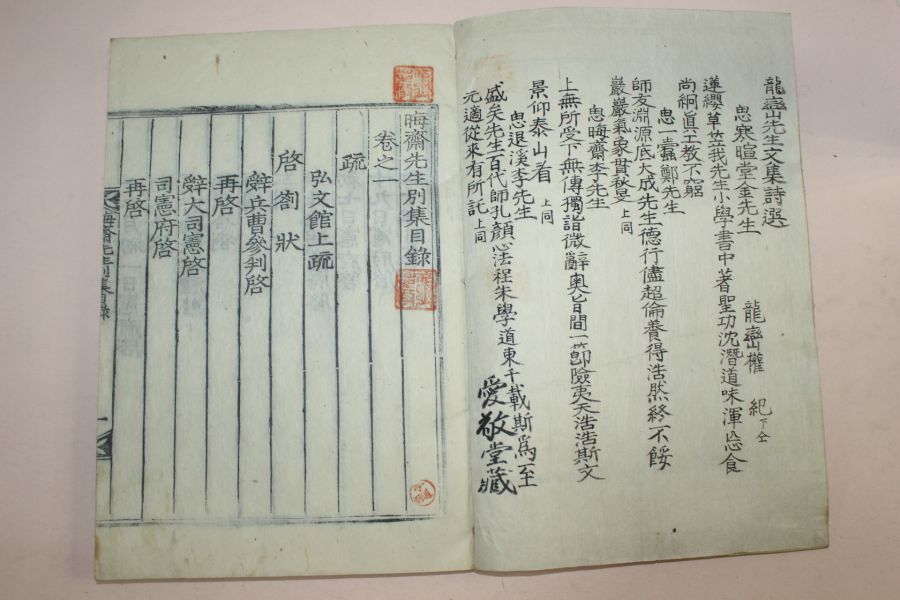 龍巒先生文集詩選
龍巒權 紀下仝
思寒暄堂金先生
蓬纓草笠我先生小學書中著聖功沈潛道味渾忘食
尚絅眞工教不窮
思一蠹鄭先生
師友淵源底大成先生德行儘超倫養得浩然終不餒
巖巖氣象貫秋旻 上同
思晦齋李先生
上無所受下無傳獨詣微辭奧旨日間一節險夷天浩浩斯文
景仰泰山看 上同
思退溪李先生
盛矣先生百代師孔顔心法程朱學道東千載斯爲至
元適從來有所託 上同
愛敬堂藏
晦齋先生別集目錄
卷之一
疏
弘文館上疏
啓劄狀
辭兵曹參判啓
再啓
辭大司憲啓
司憲府啓
再啓
晦齋先生別集目錄
一